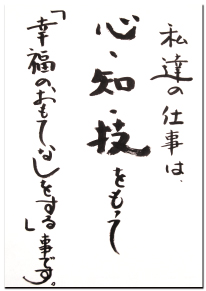 私達の仕事は、
心・知・技をもって
「幸福のおもてなしをする」事です。